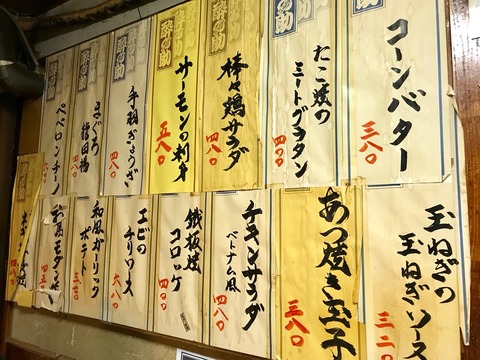 コーンバター
三八〇
たこ焼の
ミートグラタン
四〇〇
酔の助
棒々鶏サラダ
四八〇
酔の助
サーモンの刺身
五八〇
酔の助
手羽ぎょうざ
四八〇
酔の助
まぐろ
竜田揚
酔の助
ペペロンチーノ
玉ねぎの
玉ねぎソース
三二〇
あつ焼き玉子
三八〇
チキンサラダ
ベトナム風
四八〇
鉄板焼
コロッケ
四〇〇
エビの
チリソース
六八〇
和風ガーリック
ポテト
三五〇
広島モダン焼